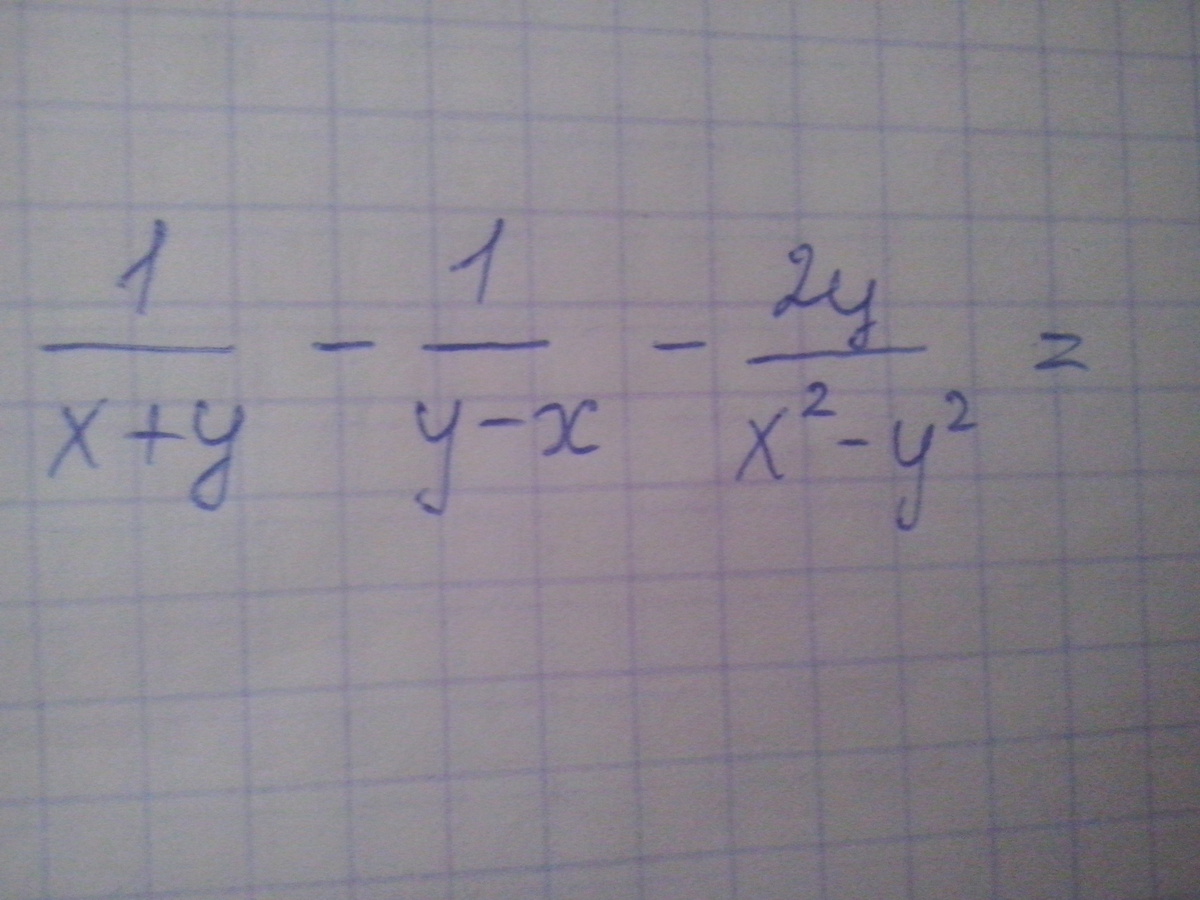 1/(x+y) - 1/(y-x) - 2y/(x²-y²) =